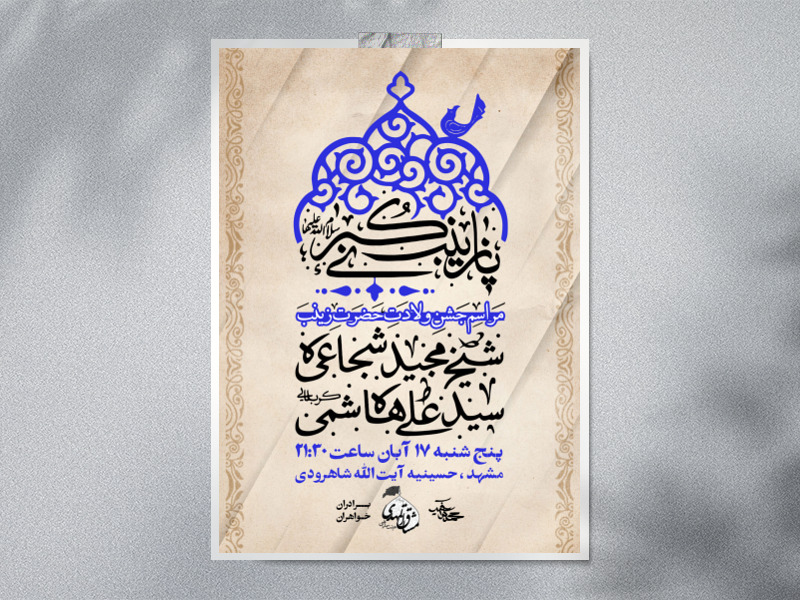 یا زینب کبری
سلام الله علیها
مراسم جشن ولادت حضرت زینب
شیخ مجید شجاعی
سید علی هاشمی
کربلایی
پنج شنبه ۱۷ آبان ساعت ۲۱:۳۰
مشهد ، حسینیه آیت الله شاهرودی
برادران
خواهران